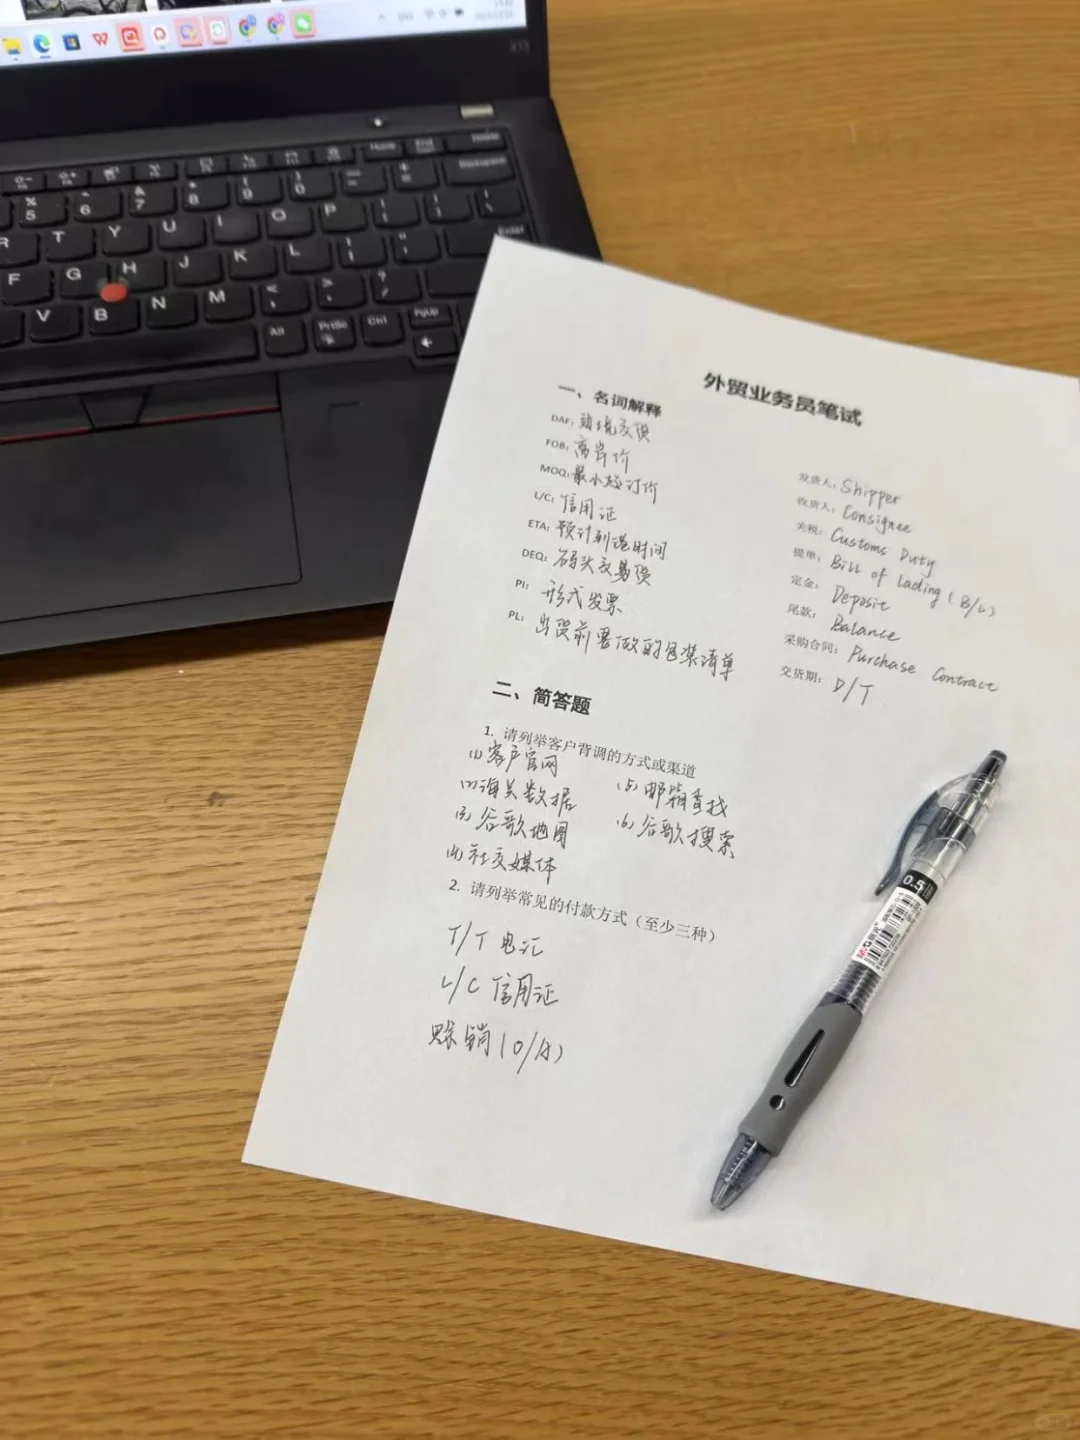 外贸业务员笔试
一、名词解释
DAF: 边境交货
FOB: 离岸价
MOQ: 最小起订价
L/C: 信用证
ETA: 预计到港时间
DEQ: 码头交易货
PI: 形式发票
PL: 出货前要做的包装清单
发货人: Shipper
收货人: Consignee
关税: Customs Duty
提单: Bill of Lading (B/L)
定金: Deposit
尾款: Balance
采购合同: Purchase Contract
交货期: D/T
二、简答题
1. 请列举客户背调的方式或渠道
(1) 客户官网
(2) 海关数据
(3) 谷歌地图
(4) 社交媒体
(5) 邮箱查找
(6) 谷歌搜索
2. 请列举常见的付款方式（至少三种）
T/T 电汇
L/C 信用证
赊销 (O/A)
0.5
M&G
X13
Home
End
Delete
Backspace
5 6 7 8 9 0
R T Y U I O P
Enter
F G H J K L
V B N M
Alt PrtSc Ctrl PgUp